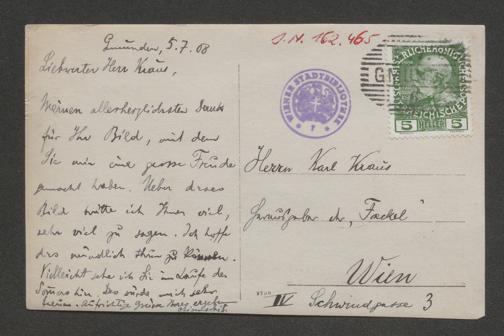 Gmunden, 5.7.08
Liebwerter Herr Kraus,
Meinen allerherzlichsten Dank
für Ihr Bild, mit dem
Sie mir eine grosse Freude
gemacht haben. Ueber dieses
Bild hätte ich Ihnen viel,
sehr viel zu sagen. Ich hoffe
dies mündlich thun zu können.
Vielleicht sehe ich Sie im Laufe des
Sommers hier. Das würde mich sehr
freuen. Aufrichtige Grüsse Ihres ergeb.
J.N. 162.465
WIENER STADTBIBLIOTHEK
GM
5 5
Herrn Karl Kraus
Herausgeber der „Fackel"
Wien
IV Schwindgasse 3